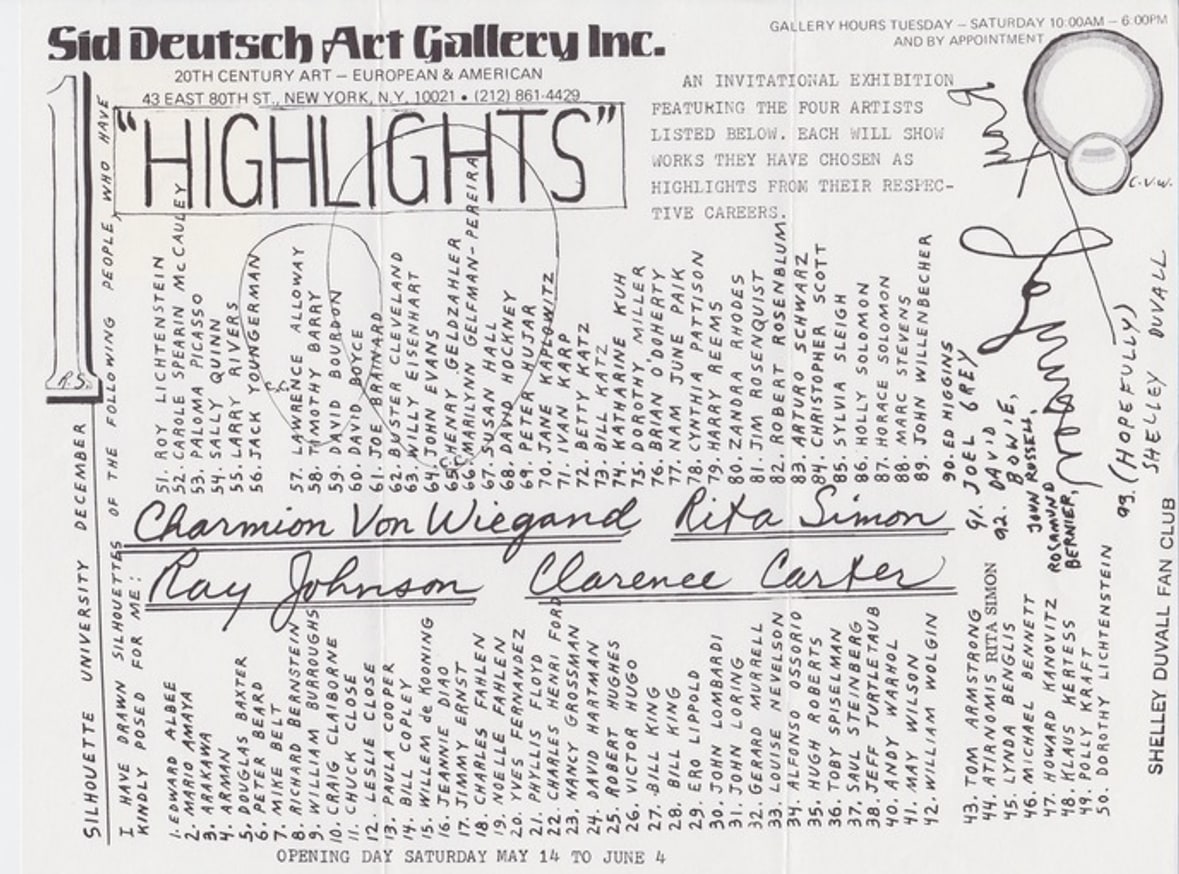 Sid Deutsch Art Gallery Inc.
20TH CENTURY ART — EUROPEAN & AMERICAN
43 EAST 80TH ST., NEW YORK, N.Y. 10021 • (212) 861-4429
GALLERY HOURS TUESDAY — SATURDAY 10:00AM — 6:00PM
AND BY APPOINTMENT
"HIGHLIGHTS"
AN INVITATIONAL EXHIBITION
FEATURING THE FOUR ARTISTS
LISTED BELOW. EACH WILL SHOW
WORKS THEY HAVE CHOSEN AS
HIGHLIGHTS FROM THEIR RESPEC-
TIVE CAREERS.
C.V.W.
R.S.
Charmion Von Wiegand
Rita Simon
Ray Johnson
Clarence Carter
OPENING DAY SATURDAY MAY 14 TO JUNE 4
SILHOUETTE UNIVERSITY DECEMBER
I HAVE DRAWN SILHOUETTES OF THE FOLLOWING PEOPLE, WHO HAVE
KINDLY POSED FOR ME:
1. EDWARD ALBEE
2. MARIO AMAYA
3. ARAKAWA
4. ARMAN
5. DOUGLAS BAXTER
6. PETER BEARD
7. MIKE BELT
8. RICHARD BERNSTEIN
9. WILLIAM BURROUGHS
10. CRAIG CLAIBORNE
11. CHUCK CLOSE
12. LESLIE CLOSE
13. PAULA COOPER
14. BILL COPLEY
15. WILLEM de KOONING
16. JEANNIE DIAO
17. JIMMY ERNST
18. CHARLES FAHLEN
19. NOELLE FAHLEN
20. YVES FERNANDEZ
21. PHYLLIS FLOYD
22. CHARLES HENRI FORD
23. NANCY GROSSMAN
24. DAVID HARTMAN
25. ROBERT HUGHES
26. VICTOR HUGO
27. BILL KING
28. BILL KING
29. ERO LIPPOLD
30. JOHN LOMBARDI
31. JOHN LORING
32. GERARD MURRELL
33. LOUISE NEVELSON
34. ALFONSO OSSORIO
35. HUGH ROBERTS
36. TOBY SPISELMAN
37. SAUL STEINBERG
38. JEFF TURTLETAUB
40. ANDY WARHOL
41. MAY WILSON
42. WILLIAM WOLGIN
43. TOM ARMSTRONG
44. ATIRNOMIS RITA SIMON
45. LYNDA BENGLIS
46. MICHAEL BENNETT
47. HOWARD KANOVITZ
48. KLAUS KERTESS
49. POLLY KRAFT
50. DOROTHY LICHTENSTEIN
51. ROY LICHTENSTEIN
52. CAROLE SPEARIN McCAULEY
53. PALOMA PICASSO
54. SALLY QUINN
55. LARRY RIVERS
56. JACK YOUNGERMAN
57. LAWRENCE ALLOWAY
58. TIMOTHY BARRY
59. DAVID BOURDON
60. DAVID BOYCE
61. JOE BRAINARD
62. BUSTER CLEVELAND
63. WILLY EISENHART
64. JOHN EVANS
65. HENRY GELDZAHLER
66. MARILYNN GELFMAN-PEREIRA
67. SUSAN HALL
68. DAVID HOCKNEY
69. PETER HUJAR
70. JANE KAPLOWITZ
71. IVAN KARP
72. BETTY KATZ
73. BILL KATZ
74. KATHARINE KUH
75. DOROTHY MILLER
76. BRIAN O'DOHERTY
77. NAM JUNE PAIK
78. CYNTHIA PATTISON
79. HARRY REEMS
80. ZANDRA RHODES
81. JIM ROSENQUIST
82. ROBERT ROSENBLUM
83. ARTURO SCHWARZ
84. CHRISTOPHER SCOTT
85. SYLVIA SLEIGH
86. HOLLY SOLOMON
87. HORACE SOLOMON
88. MARC STEVENS
89. JOHN WILLENBECHER
90. ED HIGGINS
91. JOEL GREY
92. DAVID
BOWIE,
JOHN RUSSELL,
ROSAMUND
BERNIER,
93. (HOPEFULLY)
SHELLEY DUVALL
SHELLEY DUVALL FAN CLUB